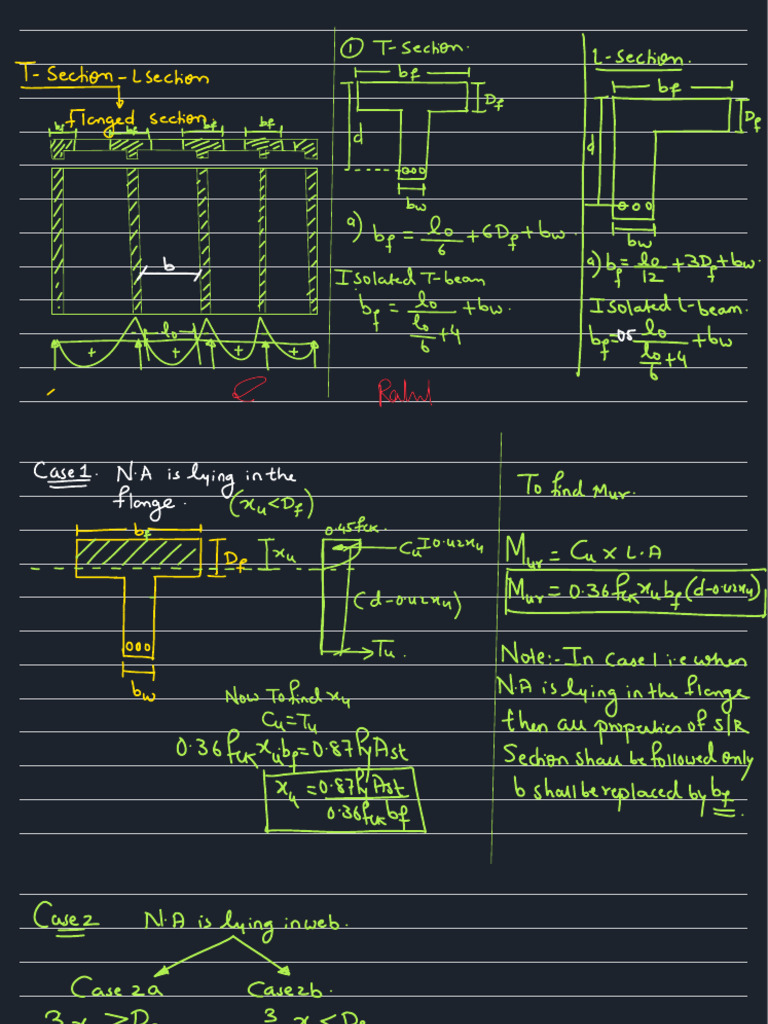 T-Section-Lsection
flanged section
bf bf bf bf
b
lo
+ + + +
① T-Section.
bf
Df
d
bw
a) bf = lo/6 + 6Df + bw.
Isolated T-beam
bf = lo/(lo/6 + 4) + bw.
L-Section.
bf
Df
d
bw
a) bf = lo/12 + 3Df + bw.
Isolated L-beam.
bf = 0.5 lo/(lo/6 + 4) + bw
Rahul
Case 1. N.A is lying in the
flange. (xu<Df)
bf
Df
xu
bw
0.45fck
Cu 0.42xu
(d-0.42xu)
Tu.
Now To find xu
Cu=Tu
0.36fck xu bf = 0.87fy Ast
xu = 0.87fy Ast / 0.36fck bf
To find Mur.
Mur = Cu x L.A
Mur = 0.36fck xu bf (d-0.42xu)
Note:- In Case 1 i.e when
N.A is lying in the flange
then all properties of S/R
Section shall be followed only
b shall be replaced by bf
Case 2 N.A is lying in web.
Case 2a Case2b.